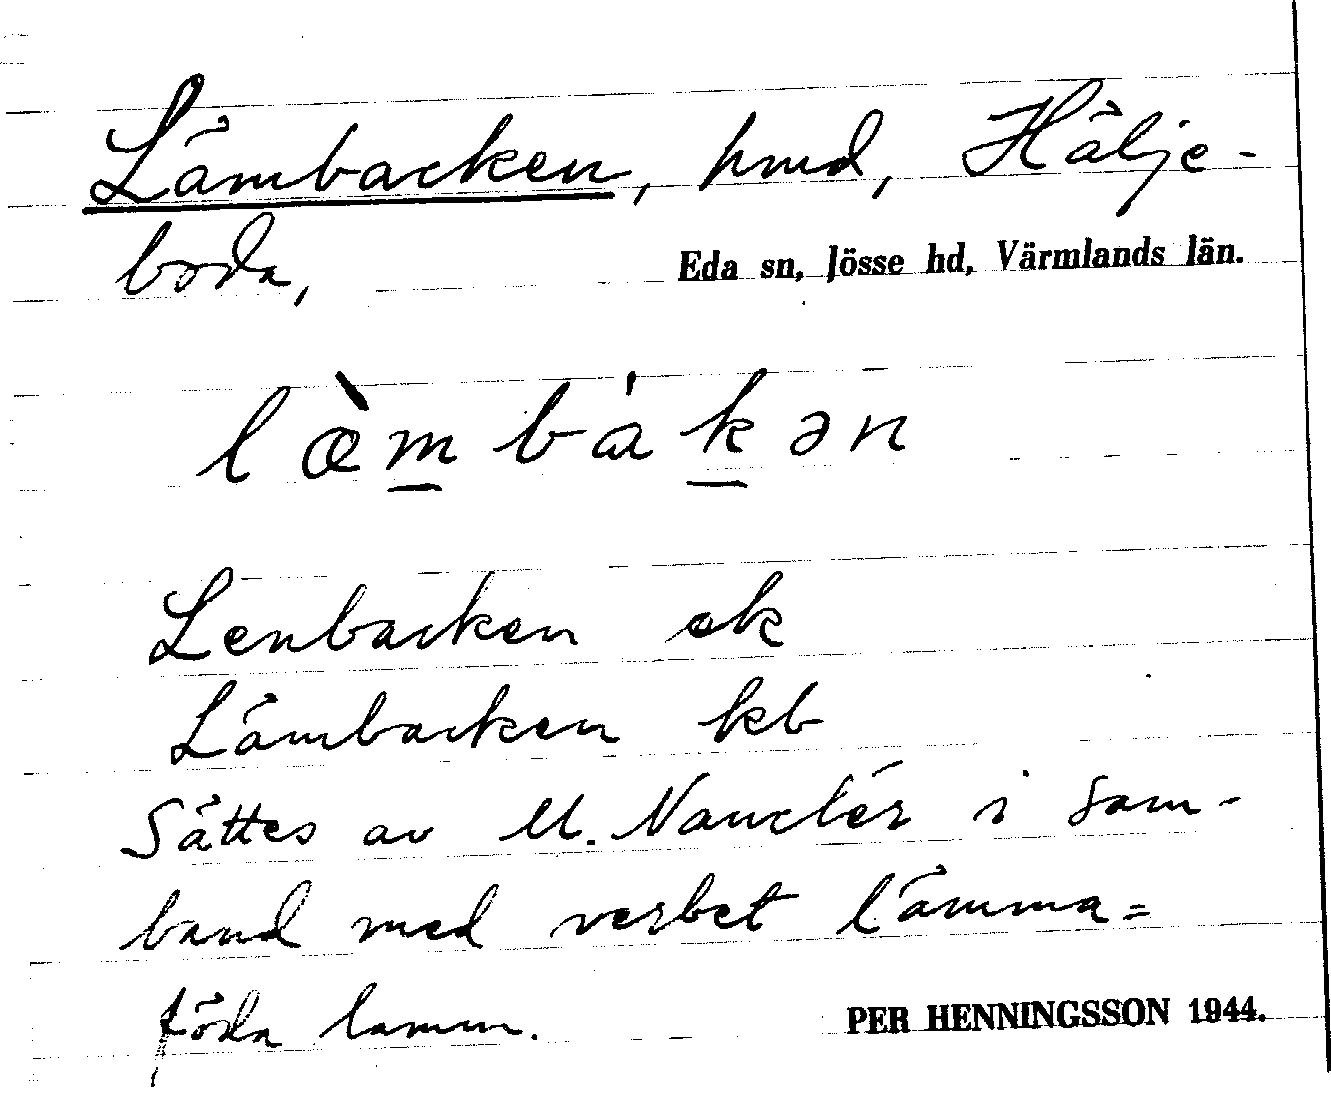 Lämbacken, hmd, Hälje-
boda,
Eda sn, Jösse hd, Värmlands län.
lœ̀m̲bȧk̲ən
Lenbacken ek
Lämbacken kb
Sättes av M. Nauclér i sam-
band med verbet lämma =
föda lamm.
PER HENNINGSSON 1944.